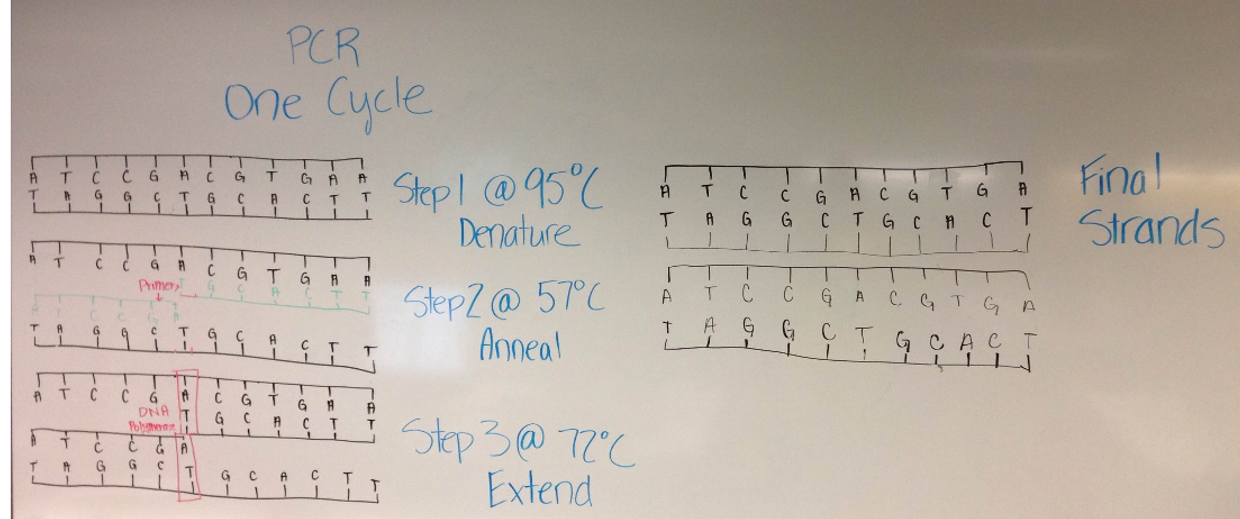 PCR
One Cycle
A T C C G A C G T G A A
T A G G C T G C A C T T
Step 1 @ 95°C
Denature
A T C C G A C G T G A A
Primers
T G C A C T T
A T C C G A
T A G G C T G C A C T T
Step 2 @ 57°C
Anneal
A T C C G A C G T G A A
DNA
Polymerase
T G C A C T T
A T C C G A
T A G G C T G C A C T T
Step 3 @ 72°C
Extend
A T C C G A C G T G A
T A G G C T G C A C T
A T C C G A C G T G A
T A G G C T G C A C T
Final
Strands